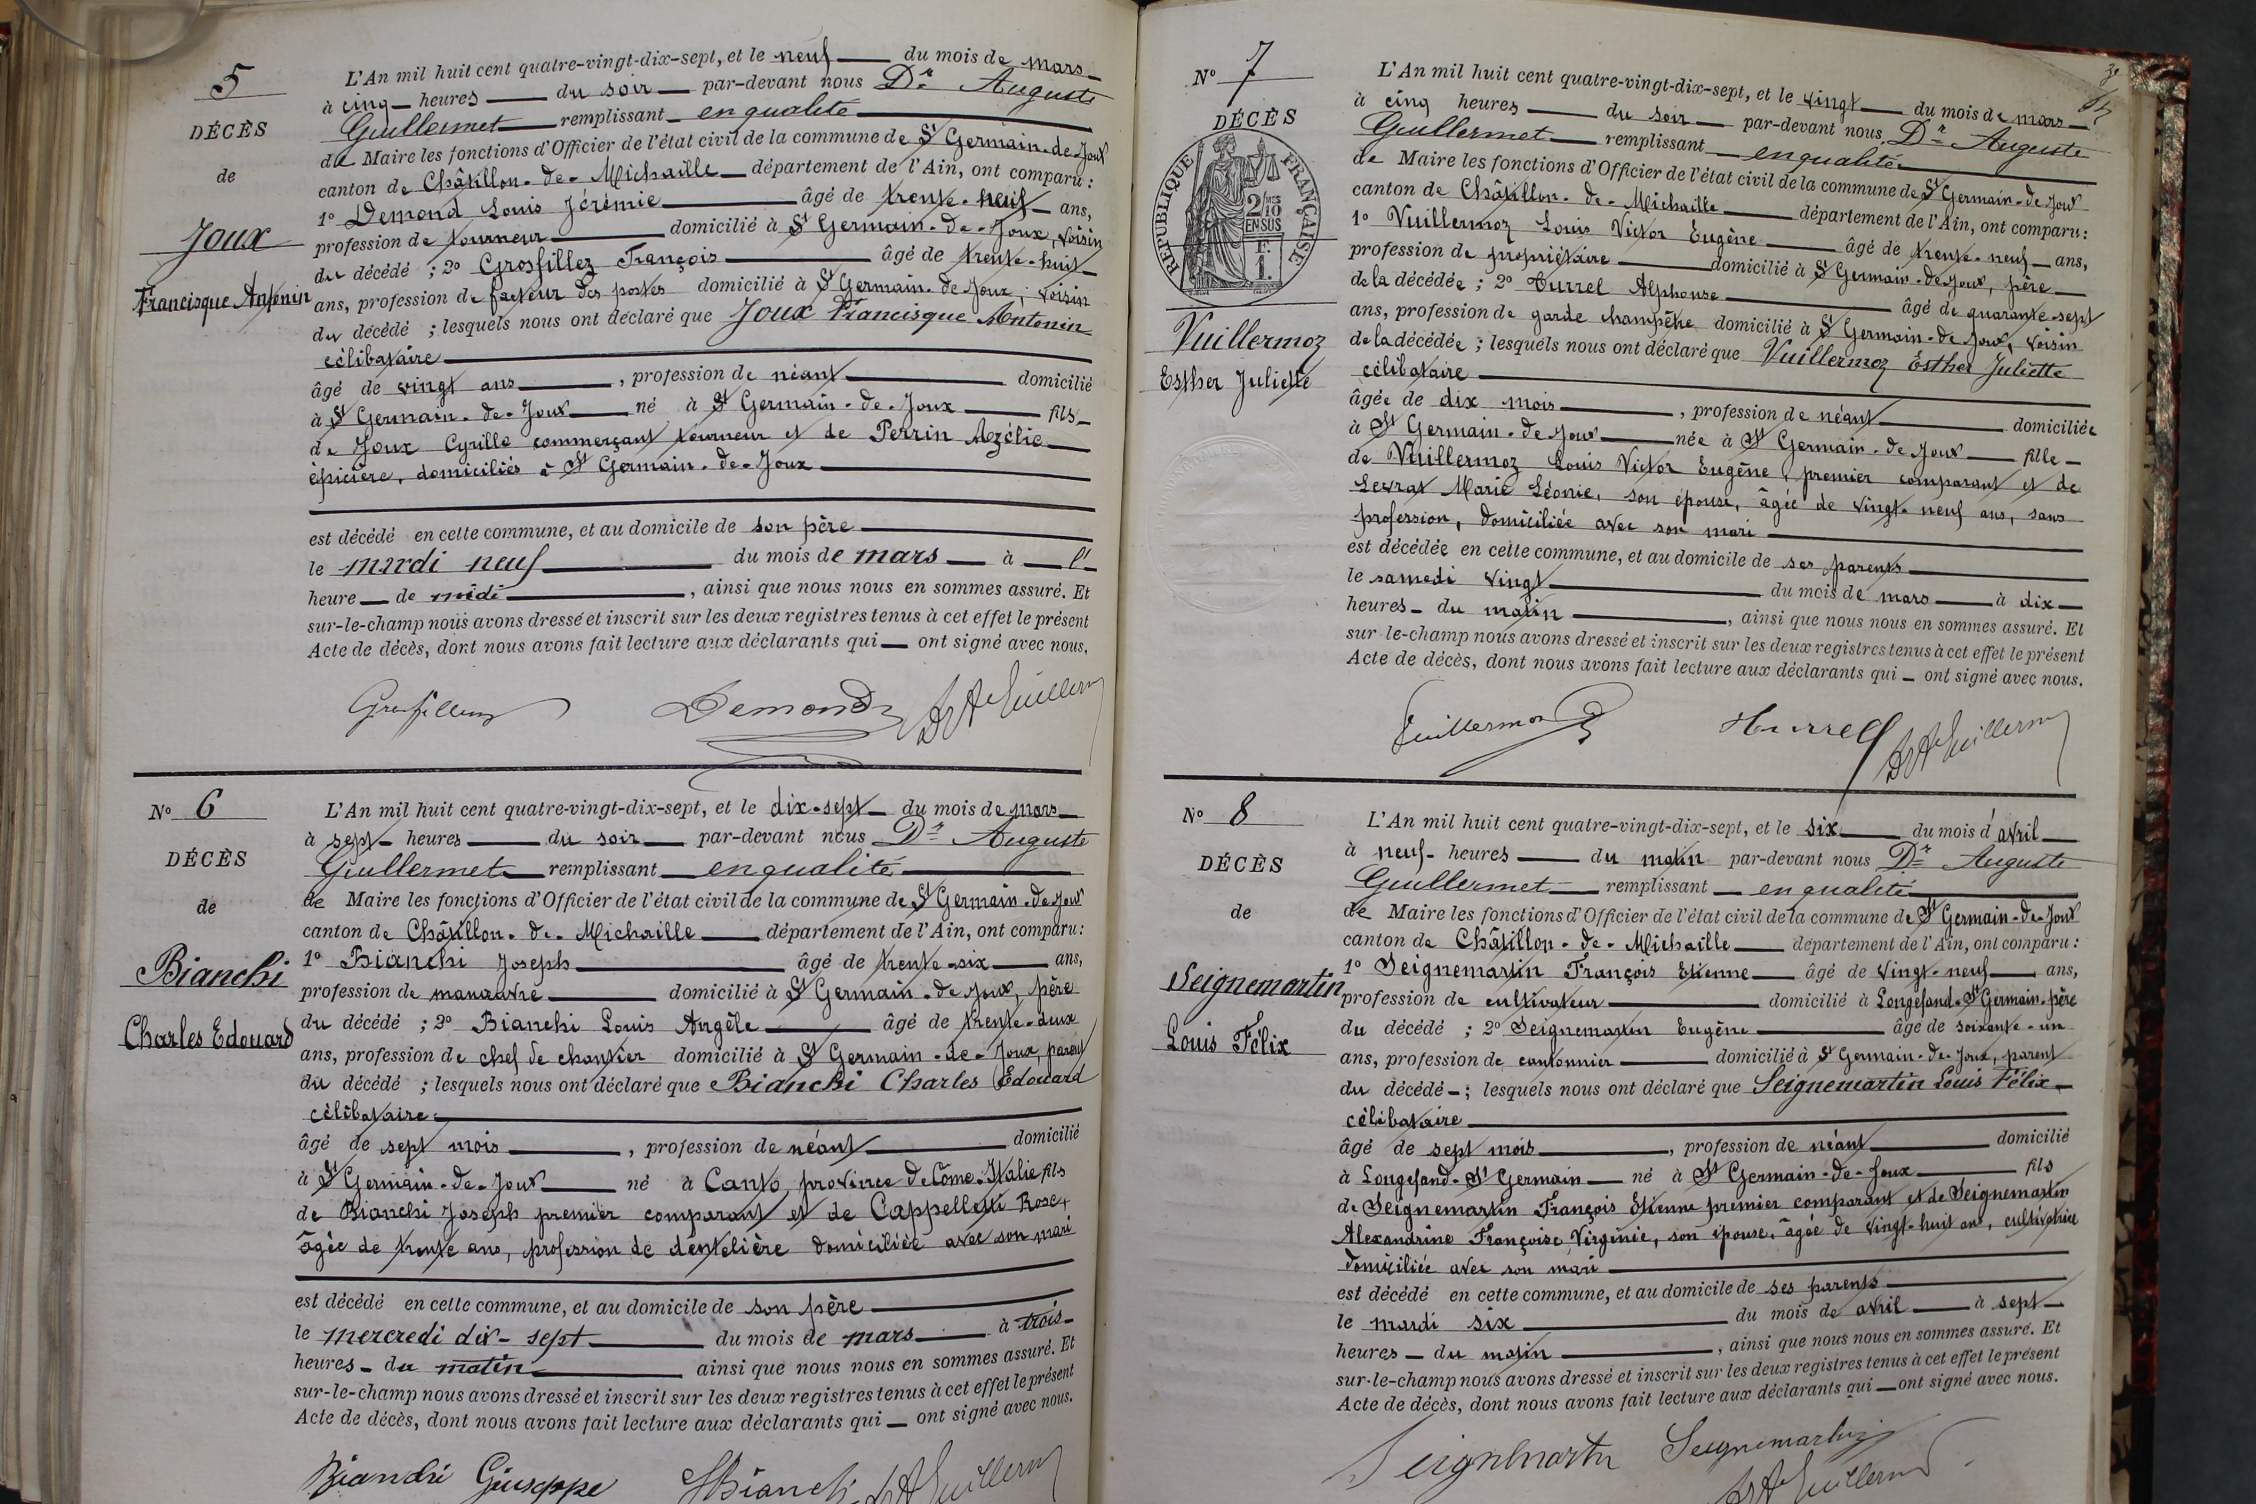 5
DÉCÈS
de
Joux
Francisque Antonin
L'An mil huit cent quatre-vingt-dix-sept, et le neuf du mois de mars
à cinq heures du soir par-devant nous Dr Auguste
Guillermet remplissant en qualité
de Maire les fonctions d'Officier de l'état civil de la commune de St Germain-de-Joux
canton de Châtillon-de-Michaille département de l'Ain, ont comparu :
1° Demond Louis Jérémie âgé de trente-neuf ans,
profession de tourneur domicilié à St Germain-de-Joux, voisin
du décédé ; 2° Grosfillez François âgé de trente-huit
ans, profession de facteur des postes domicilié à St Germain-de-Joux, voisin
du décédé ; lesquels nous ont déclaré que Joux Francisque Antonin
célibataire
âgé de vingt ans, profession de néant domicilié
à St Germain-de-Joux né à St Germain-de-Joux fils
de Joux Cyrille commerçant tourneur et de Perrin Azélie
épicière, domiciliés à St Germain-de-Joux
est décédé en cette commune, et au domicile de son père
le mardi neuf du mois de mars à l'
heure de midi, ainsi que nous nous en sommes assuré. Et
sur-le-champ nous avons dressé et inscrit sur les deux registres tenus à cet effet le présent
Acte de décès, dont nous avons fait lecture aux déclarants qui ont signé avec nous.
Grosfillez Demond Dr Ate Guillermet
N° 6
DÉCÈS
de
Bianchi
Charles Edouard
L'An mil huit cent quatre-vingt-dix-sept, et le dix-sept du mois de mars
à sept heures du soir par-devant nous Dr Auguste
Guillermet remplissant en qualité
de Maire les fonctions d'Officier de l'état civil de la commune de St Germain-de-Joux
canton de Châtillon-de-Michaille département de l'Ain, ont comparu :
1° Bianchi Joseph âgé de trente-six ans,
profession de manœuvre domicilié à St Germain-de-Joux, père
du décédé ; 2° Bianchi Louis Angèle âgé de trente-deux
ans, profession de chef de chantier domicilié à St Germain-de-Joux, parent
du décédé ; lesquels nous ont déclaré que Bianchi Charles Edouard
célibataire
âgé de sept mois, profession de néant domicilié
à St Germain-de-Joux né à Cantò, province de Côme-Italie fils
de Bianchi Joseph premier comparant et de Cappelletti Rose,
âgée de trente ans, profession de dentelière domiciliée avec son mari
est décédé en cette commune, et au domicile de son père
le mercredi dix-sept du mois de mars à trois
heures du matin ainsi que nous nous en sommes assuré. Et
sur-le-champ nous avons dressé et inscrit sur les deux registres tenus à cet effet le présent
Acte de décès, dont nous avons fait lecture aux déclarants qui ont signé avec nous.
Bianchi Giuseppe Bianchi Dr Ate Guillermet
N° 7
DÉCÈS
RÉPUBLIQUE FRANÇAISE
2/10 EN SUS
1 F.
Vuillermoz
Esther Juliette
L'An mil huit cent quatre-vingt-dix-sept, et le vingt du mois de mars
à cinq heures du soir par-devant nous Dr Auguste
Guillermet remplissant en qualité
de Maire les fonctions d'Officier de l'état civil de la commune de St Germain-de-Joux
canton de Châtillon-de-Michaille département de l'Ain, ont comparu :
1° Vuillermoz Louis Victor Eugène âgé de trente-neuf ans,
profession de propriétaire domicilié à St Germain-de-Joux, père
de la décédée ; 2° Hurrel Alphonse âgé de quarante-sept
ans, profession de garde champêtre domicilié à St Germain-de-Joux, voisin
de la décédée ; lesquels nous ont déclaré que Vuillermoz Esther Juliette
célibataire
âgée de dix mois, profession de néant domiciliée
à St Germain-de-Joux née à St Germain-de-Joux fille
de Vuillermoz Louis Victor Eugène, premier comparant et de
Levrat Marie Léonie, son épouse, âgée de vingt-neuf ans, sans
profession, domiciliée avec son mari
est décédée en cette commune, et au domicile de ses parents
le samedi vingt du mois de mars à dix
heures du matin, ainsi que nous nous en sommes assuré. Et
sur-le-champ nous avons dressé et inscrit sur les deux registres tenus à cet effet le présent
Acte de décès, dont nous avons fait lecture aux déclarants qui ont signé avec nous.
Vuillermoz Hurrel Dr Ate Guillermet
N° 8
DÉCÈS
de
Seignemartin
Louis Félix
L'An mil huit cent quatre-vingt-dix-sept, et le six du mois d'avril
à neuf heures du matin par-devant nous Dr Auguste
Guillermet remplissant en qualité
de Maire les fonctions d'Officier de l'état civil de la commune de St Germain-de-Joux
canton de Châtillon-de-Michaille département de l'Ain, ont comparu :
1° Seignemartin François Etienne âgé de vingt-neuf ans,
profession de cultivateur domicilié à Longefand-St Germain-père
du décédé ; 2° Seignemartin Eugène âgé de soixante-un
ans, profession de cantonnier domicilié à St Germain-de-Joux, parent
du décédé ; lesquels nous ont déclaré que Seignemartin Louis Félix
célibataire
âgé de sept mois, profession de néant domicilié
à Longefand-St Germain né à St Germain-de-Joux fils
de Seignemartin François Etienne premier comparant et de Seignemartin
Alexandrine Françoise Virginie, son épouse, âgée de vingt-huit ans, cultivatrice
domiciliée avec son mari
est décédé en cette commune, et au domicile de ses parents
le mardi six du mois de avril à sept
heures du matin, ainsi que nous nous en sommes assuré. Et
sur-le-champ nous avons dressé et inscrit sur les deux registres tenus à cet effet le présent
Acte de décès, dont nous avons fait lecture aux déclarants qui ont signé avec nous.
Seignemartin Seignemartin Dr Ate Guillermet